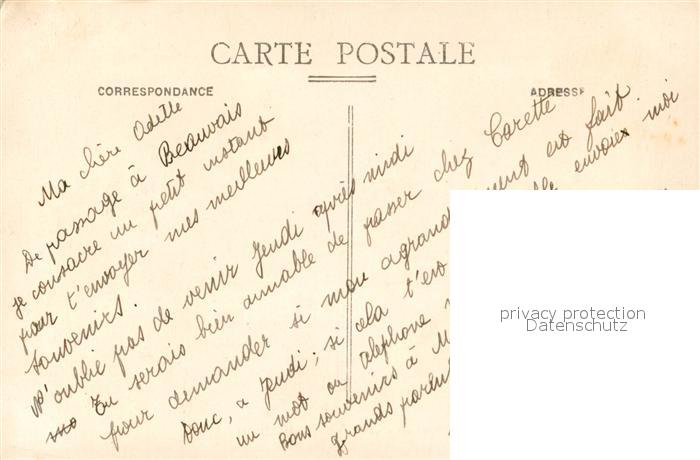 CARTE POSTALE
CORRESPONDANCE
ADRESSE
Ma chère Odette
De passage à Beauvais
je consacre un petit instant
pour t'envoyer mes meilleures
souvenirs.
N'oublie pas de venir Jeudi après midi
Tu serais bien aimable de passer chez Carette
pour demander si mon agrand ment est fait.
Donc, à Jeudi; si cela t'est ble envoies moi
un mot ou téléphone
Bons souvenirs à M
Grands paren
privacy protection
Datenschutz